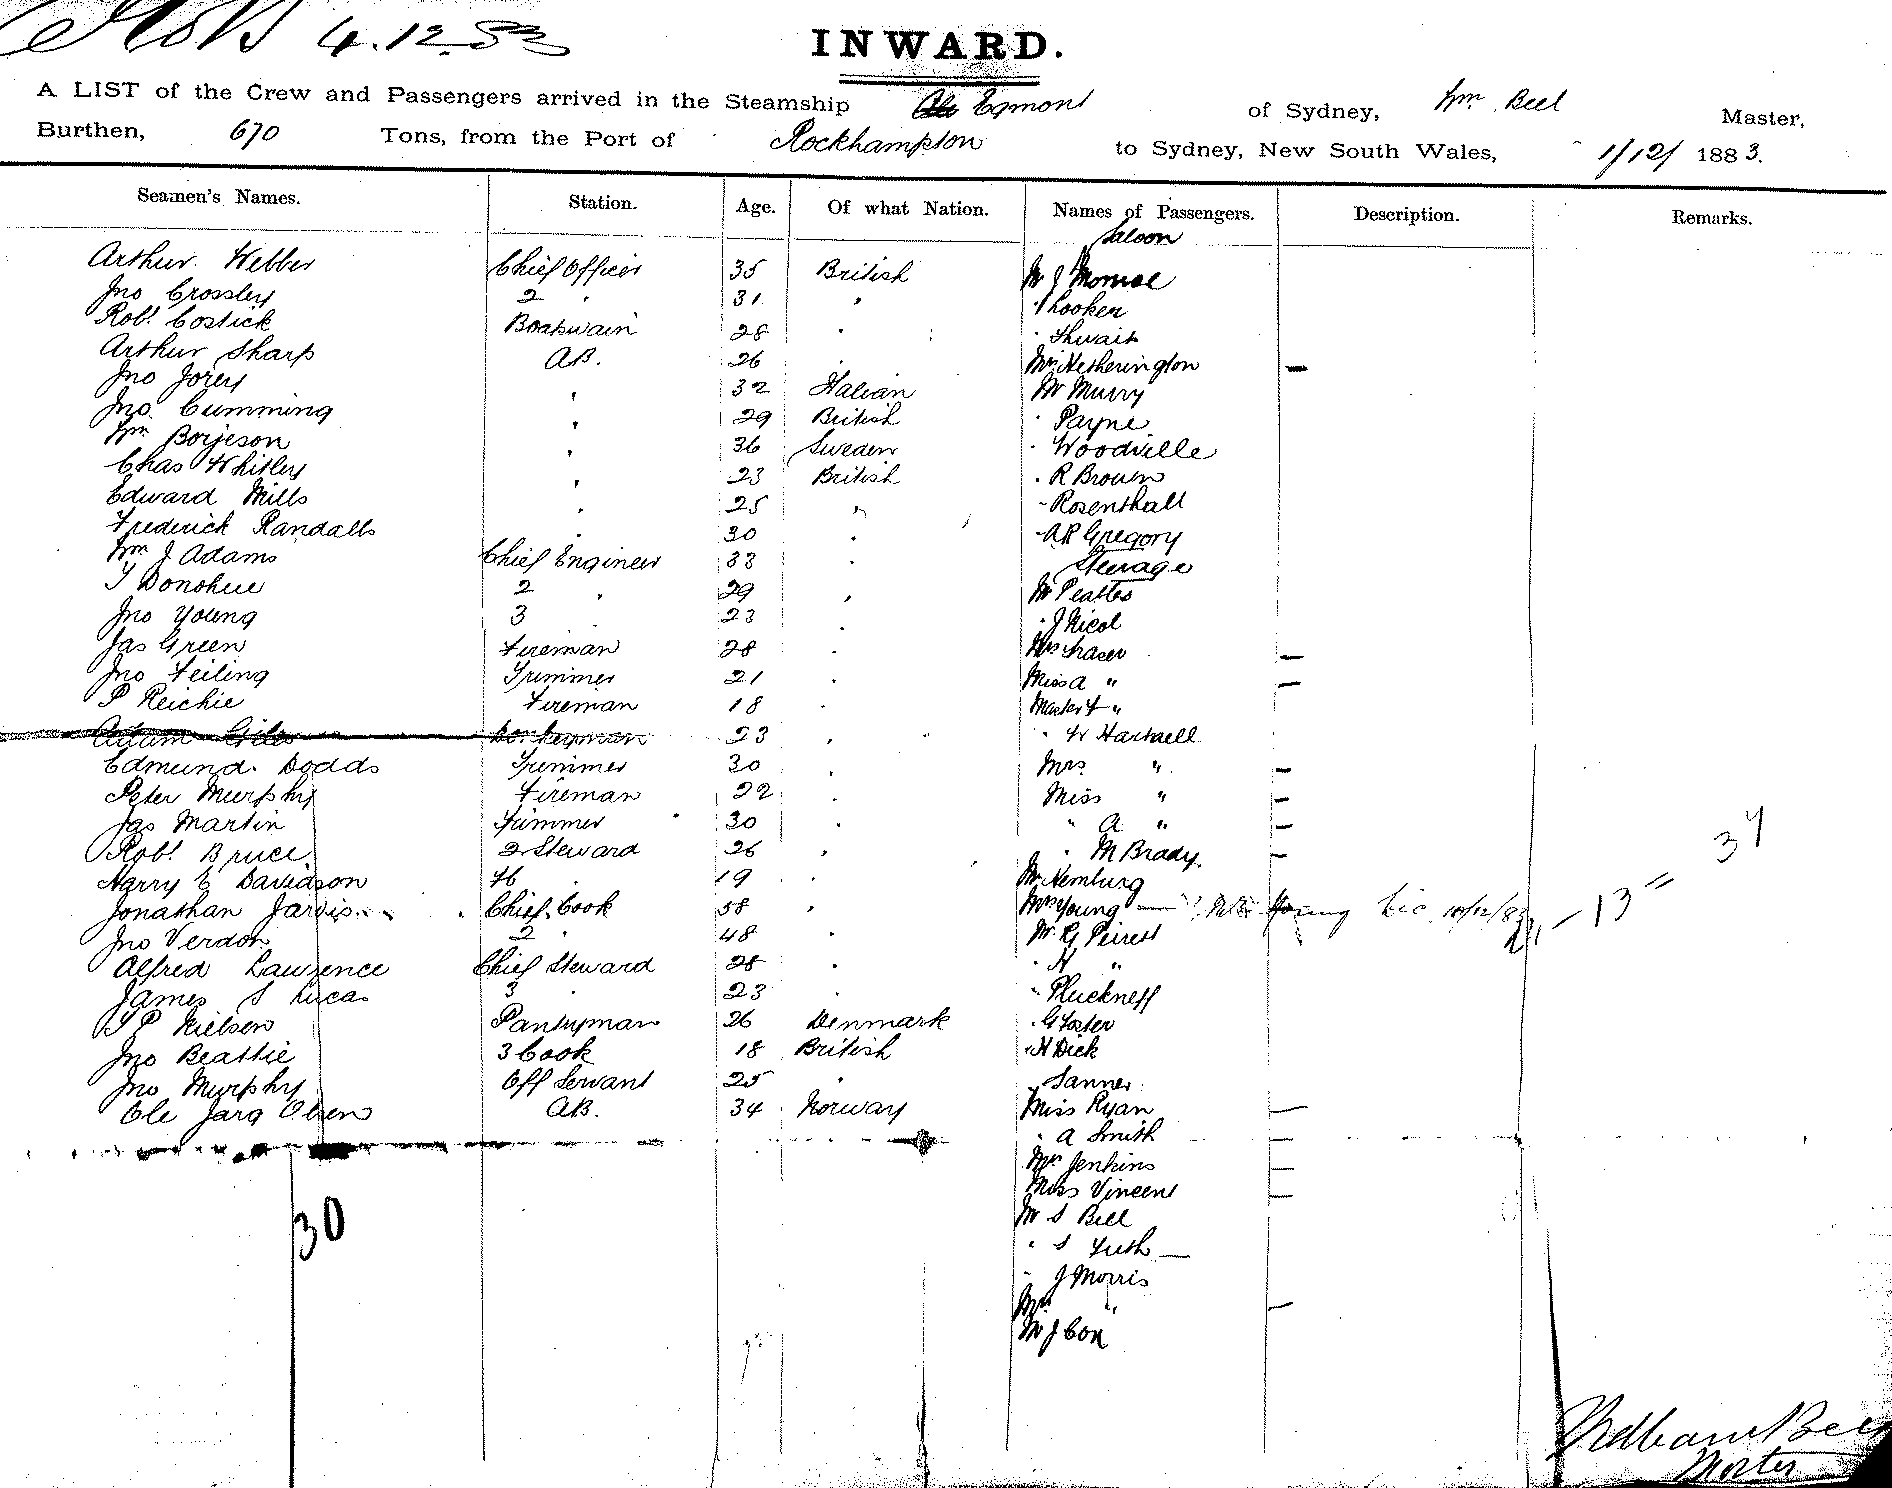 4.12.83
INWARD.
A LIST of the Crew and Passengers arrived in the Steamship Egmont of Sydney, Wm Bell Master,
Burthen, 670 Tons, from the Port of Rockhampton to Sydney, New South Wales, 1/12/ 1883.
Seamen's Names. Station. Age. Of what Nation. Names of Passengers. Description. Remarks.
Saloon
Arthur Webber Chief Officer 35 British Mr J Monroe
Jno Crossley 2 " 31 " " Hooker
Robt Costick Boatswain 28 " " Thwait
Arthur Sharp AB. 26 " Mrs Hetherington —
Jno Jorey " 32 Italian Mr Murry
Jno. Cumming " 29 British " Payne
Wm Borjeson " 36 Sweden " Woodville
Chas Whitley " 23 British " R Brown
Edward Mills " 25 " " Rosenthall
Frederick Randalls " 30 " " AR Gregory
Wm J Adams Chief Engineer 33 " Steerage
T Donohue 2 " 29 " Mr Peattes
Jno Young 3 23 " " J Nicol
Jas Green Fireman 28 " Mrs Fraser —
Jno Feiling Trimmer 21 " Miss A " —
P Reichie Fireman 18 " Master F "
Adam Giles 23 " " W Hartnell
Edmund Dodds Trimmer 30 " Mrs " —
Peter Murphy Fireman 22 " Miss " —
Jas Martin Trimmer 30 " " A " —
Robt Bruce 2 Steward 26 " " M Brady —
Harry E Davidson 4 " 19 " Mr Hemburg
Jonathan Jarvis Chief Cook 58 " Mrs Young — Young 10/12/83 — 13 " 34
Jno Verdon 2 " 48 " Mr G Peirett
Alfred Lawrence Chief Steward 28 " " H "
James S Lucas 3 " 23 " " Pluckneff
T P Nielsen Pantryman 26 Denmark " G Foster
Jno Beattie 3 Cook 18 British " H Dick
Jno Murphy Off Servant 25 " Tanner
Ole Jarg Olsen AB. 34 Norway Miss Ryan —
" A Smith —
Mrs Jenkins —
Miss Vincent —
30 Mr S Bell
" S —
" J Morris
Mrs " —
Mr J Cox
William Bell
Master